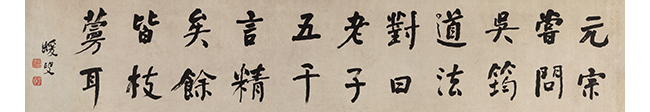 元宗
嘗問
吳筠
道法
對曰
老子
五千
言精
矣餘
皆枝
蔓耳
蝯叟